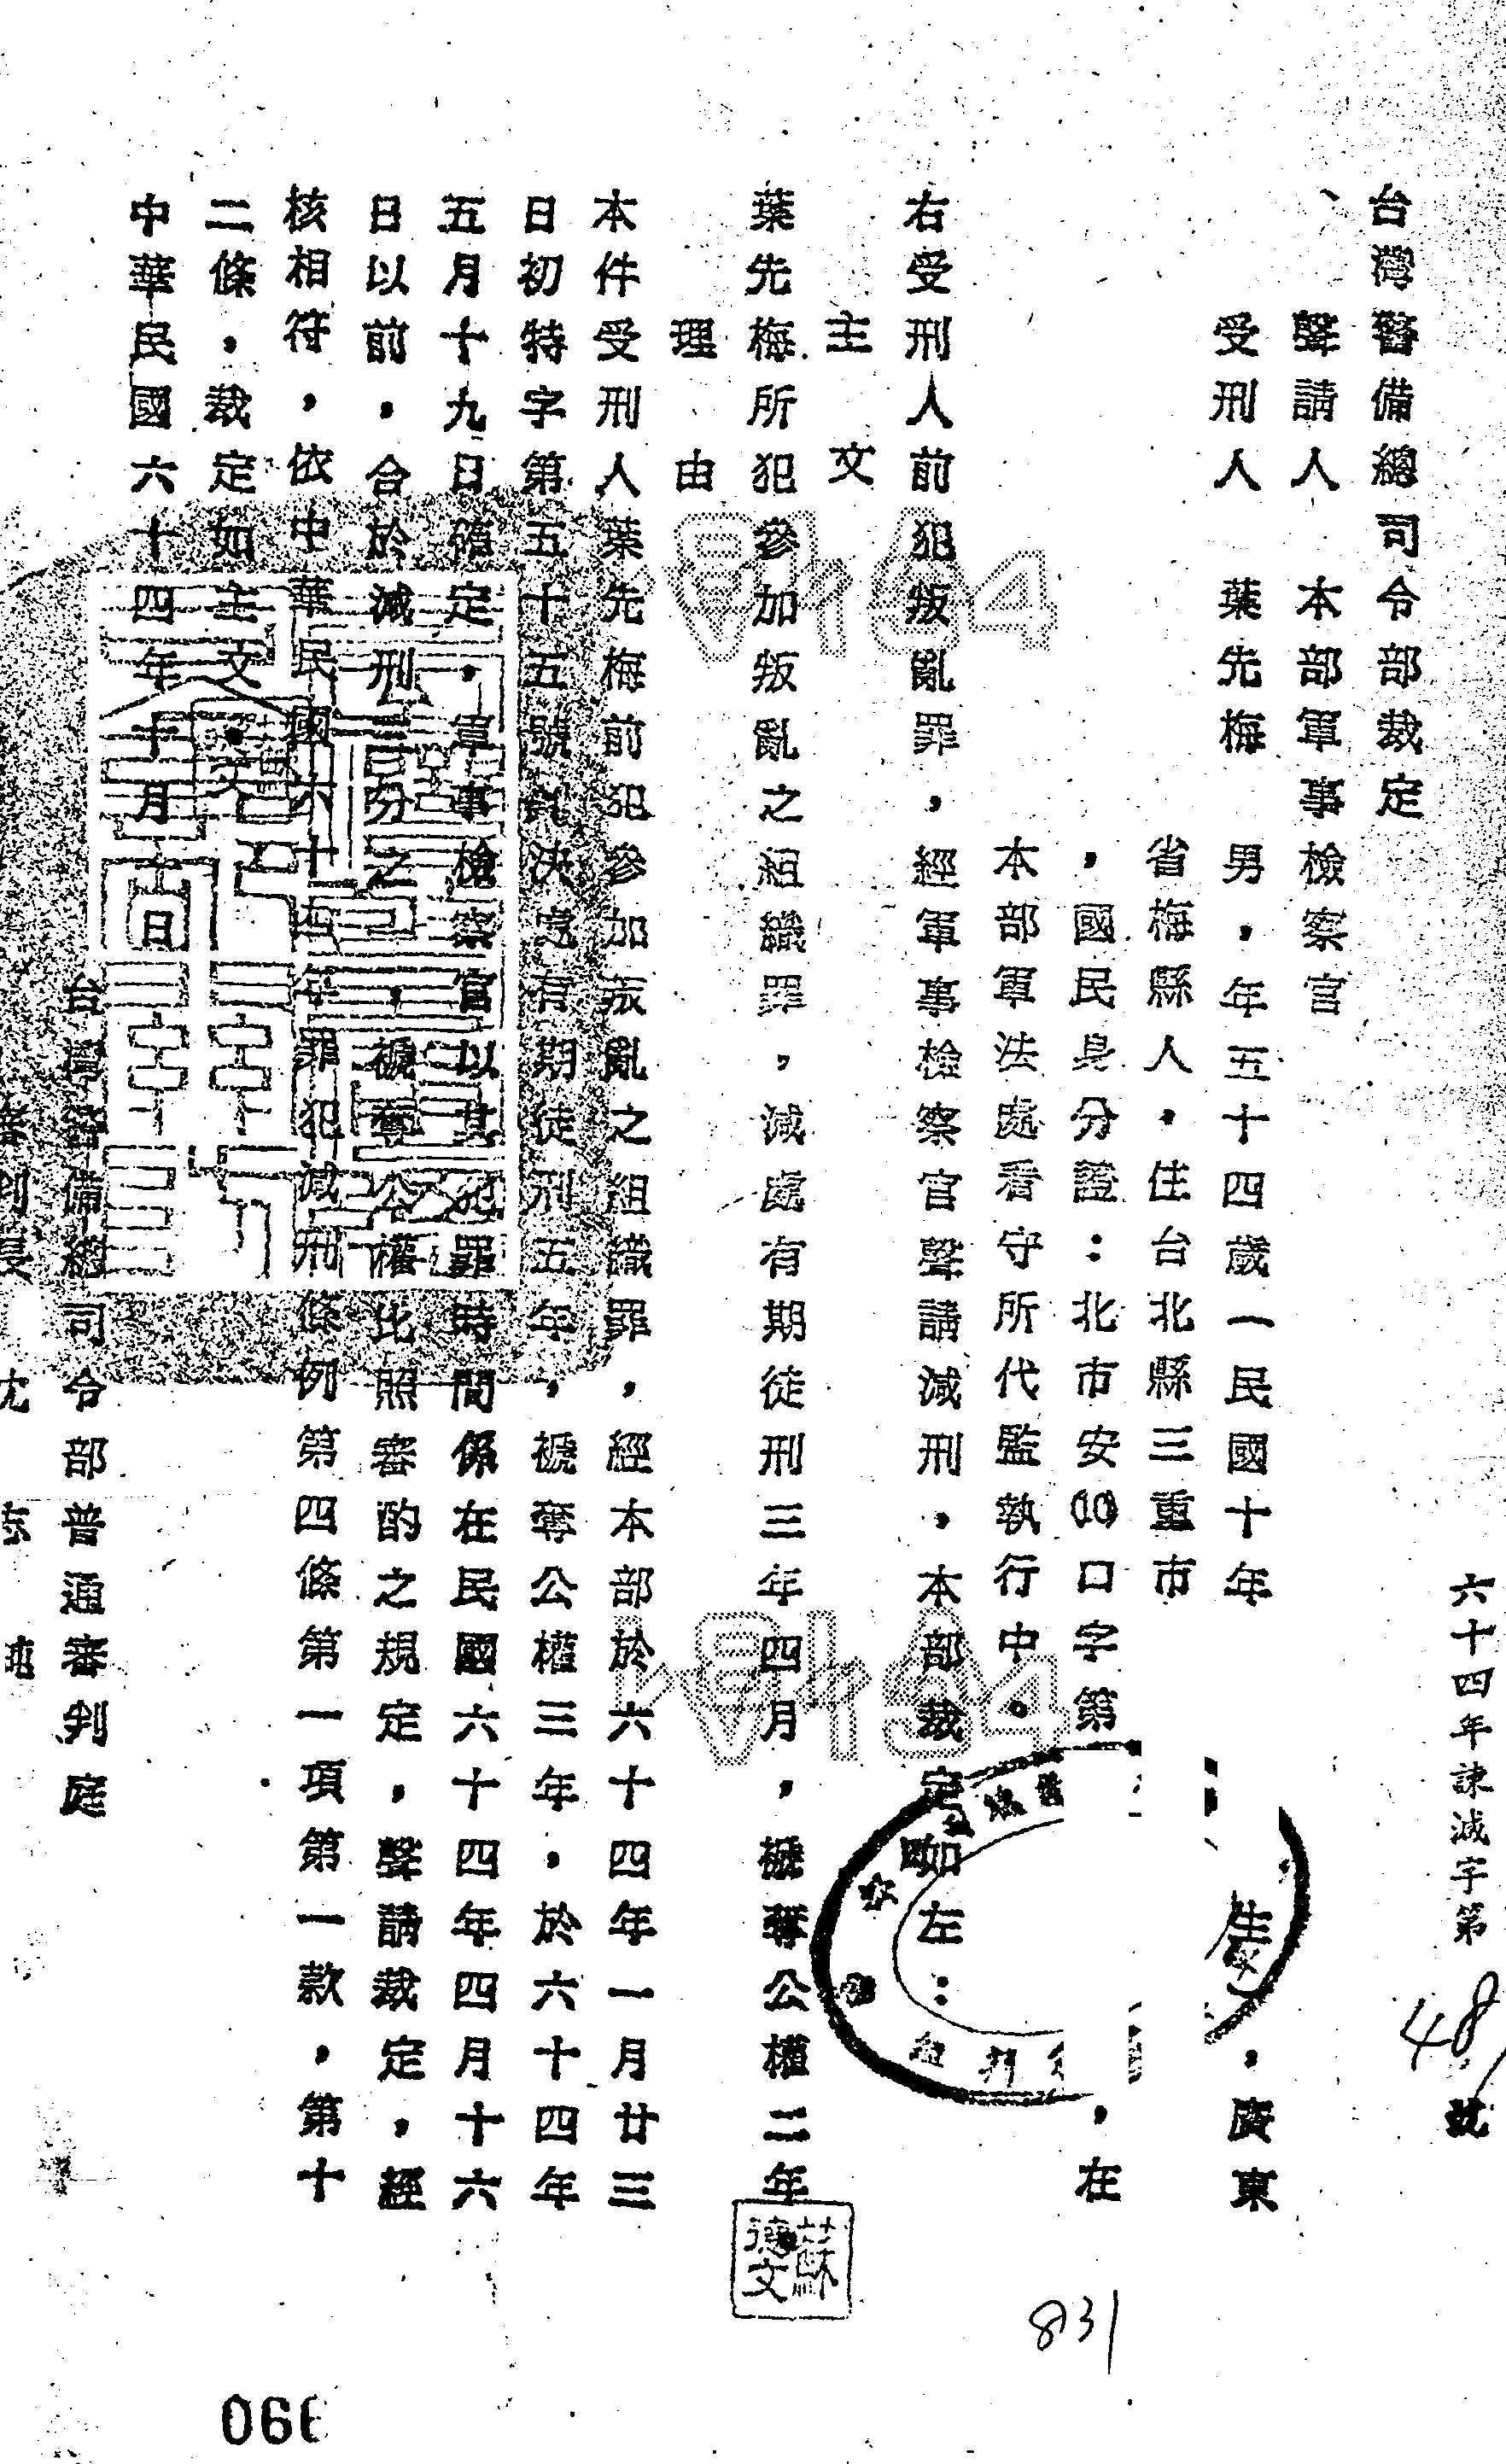 六十四年諫減字第48號
台灣警備總司令部裁定
聲請人 本部軍事檢察官
受刑人 葉先梅 男，年五十四歲一民國十年 生，廣東
省梅縣人。住台北縣三重市
，國民身分證：北市安口字第 ，在
本部軍法處看守所代監執行中。
右受刑人前犯叛亂罪，經軍事檢察官聲請減刑，本部裁定如左：
主文
葉先梅所犯參加叛亂之組織罪，減處有期徒刑三年四月，褫奪公權二年
理由
本件受刑人葉先梅前犯參加叛亂之組織罪，經本部於六十四年一月廿三
日初特字第五十五號判決處有期徒刑五年，褫奪公權三年，於六十四年
五月十九日確定，軍事檢察官以其犯罪時間係在民國六十四年四月十六
日以前，合於減刑三分之一，褫奪公權比照審酌之規定，聲請裁定，經
核相符，依中華民國六十四年罪犯減刑條例第四條第一項第一款，第十
二條，裁定如主文。
中華民國六十四年十月 日
台灣警備總司令部普通審判庭
蘇德文
831
066